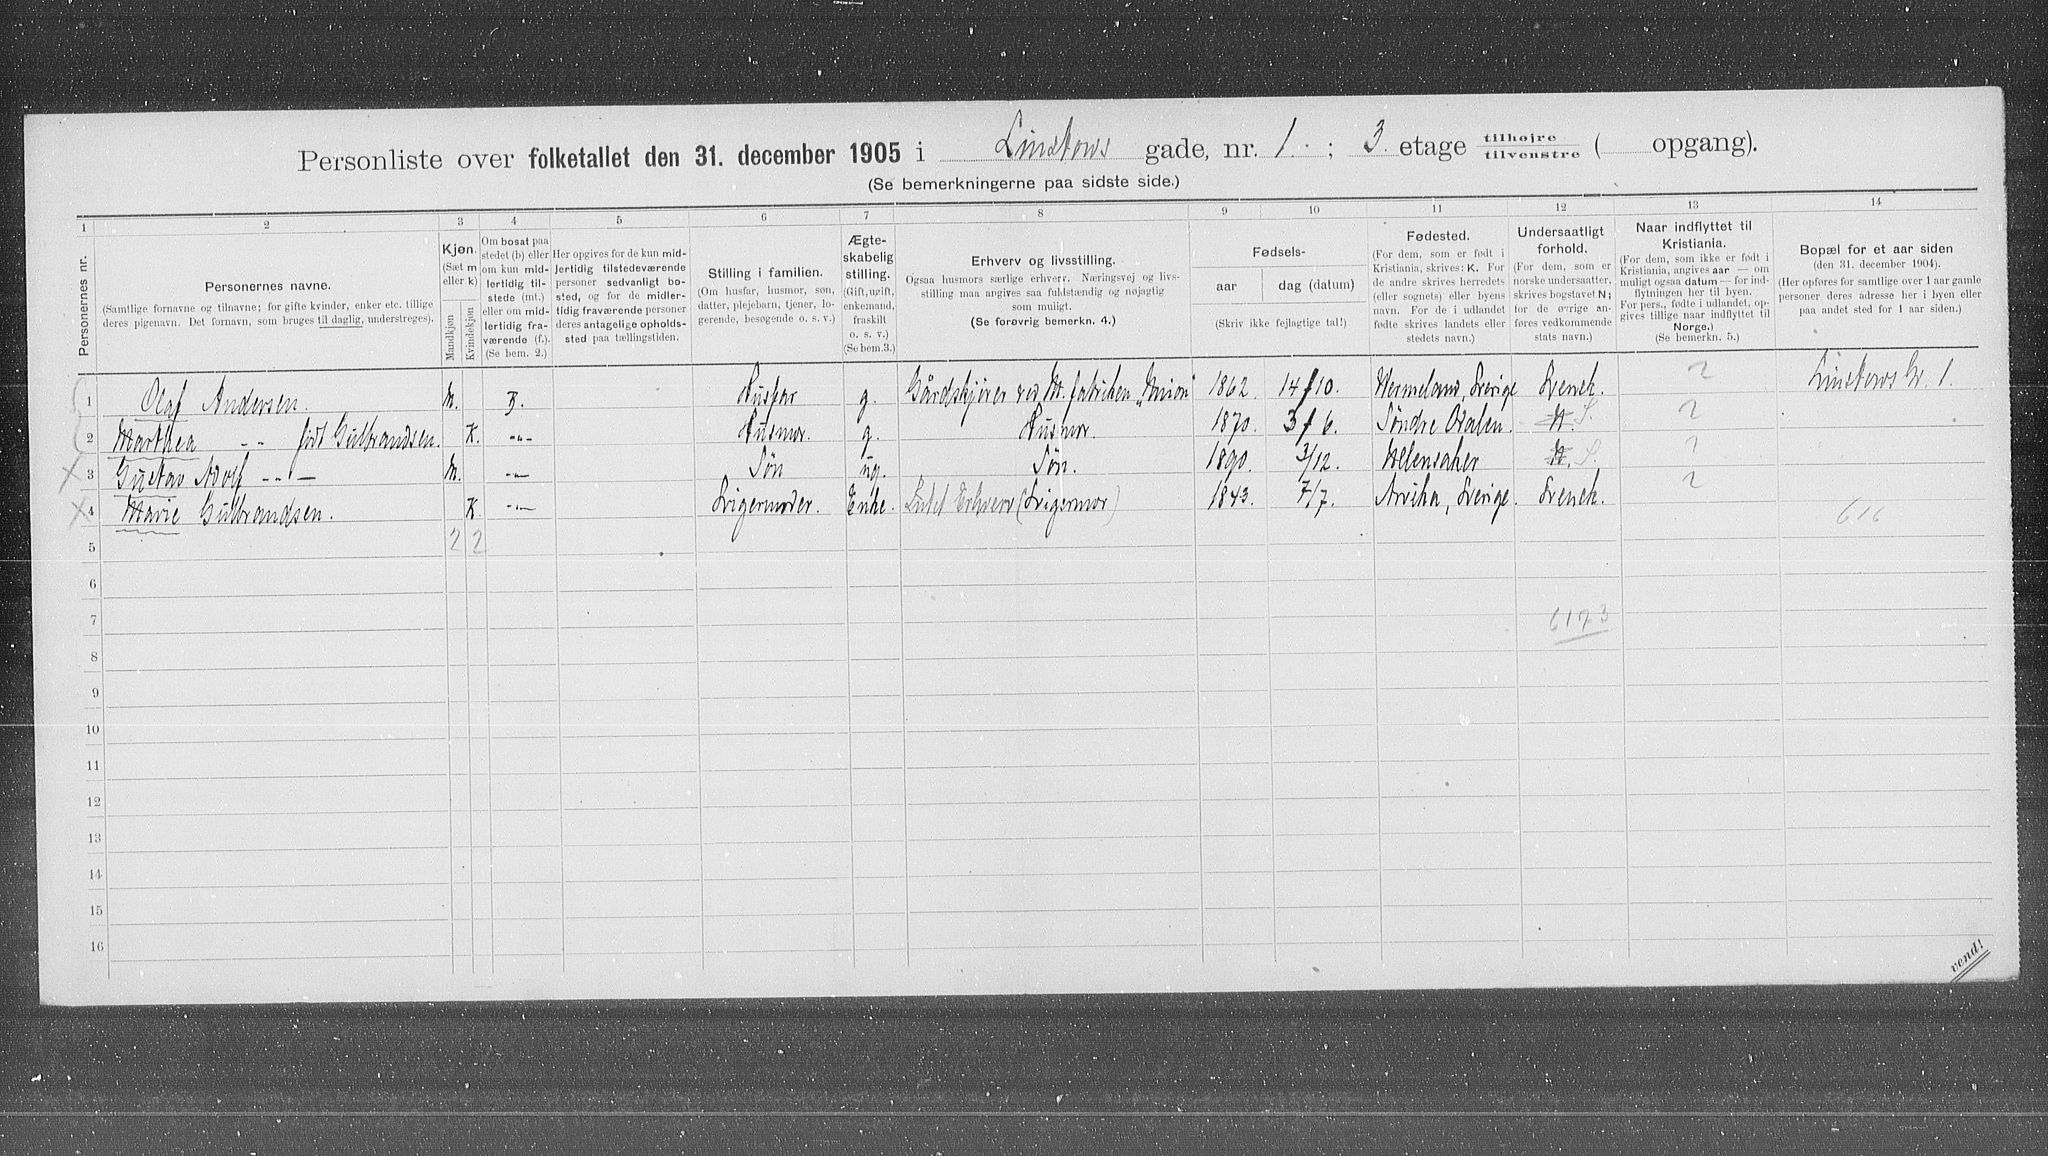 Personliste over folketallet den 31. december 1905 i Linstows gade, nr. 1. ; 3. etage tilhøjre / tilvenstre ( opgang).
(Se bemerkningerne paa sidste side.)
1 2 3 4 5 6 7 8 9 10 11 12 13 14
Personernes nr.
Personernes navne.
(Samtlige fornavne og tilnavne; for gifte kvinder, enker etc. tillige
deres pigenavn. Det fornavn, som bruges til daglig, understreges).
Kjøn.
(Sæt m
eller k)
Mandkjøn
Kvindekjøn
Om bosat paa
stedet (b) eller
om kun mid-
lertidig til-
stede (mt.)
eller om mid-
lertidig fra-
værende (f.).
(Se bem. 2.)
Her opgives for de kun mid-
lertidig tilstedeværende
personer sedvanligt bo-
sted, og for de midler-
tidig fraværende personer
deres antagelige opholds-
sted paa tællingstiden.
Stilling i familien.
(Om husfar, husmor, søn,
datter, plejebarn, tjener, lo-
gerende, besøgende o. s. v.)
Ægte-
skabelig
stilling.
(Gift, ugift,
enkemand,
fraskilt
o. s. v.)
(Se bem. 3.)
Erhverv og livsstilling.
Ogsaa husmors særlige erhverv. Næringsvej og livs-
stilling maa angives saa fuldstændig og nøjagtig
som muligt.
(Se forøvrig bemerkn. 4.)
Fødsels-
aar
dag (datum)
(Skriv ikke fejlagtige tal!)
Fødested.
(For dem, som er født i
Kristiania, skrives: K. For
de andre skrives herredets
(eller sognets) eller byens
navn. For de i udlandet
fødte skrives landets eller
stedets navn.)
Undersaatligt
forhold.
(For dem, som er
norske undersaatter,
skrives bogstavet N;
for de øvrige an-
føres vedkommende
stats navn.)
Naar indflyttet til
Kristiania.
(For dem, som ikke er født i
Kristiania, angives aar — om
muligt ogsaa datum — for ind-
flytningen her til byen.
For pers., fødte i udlandet, op-
gives tillige naar indflyttet til
Norge.)
(Se bemerkn. 5.)
Bopæl for et aar siden
(den 31. december 1904).
(Her opføres for samtlige over 1 aar gamle
personer deres adresse her i byen eller
paa andet sted for 1 aar siden.)
1 Olaf Andersen. M. B. Husfar g. Gårdskjører ved M. fabriken "Union" 1862 14/10. Wermeland, Sverige Svensk. ? Linstows G. 1.
2 Marthea -"- født Gulbrandsen. K. -"- Husmor. g. Husmor. 1870. 3/6. Søndre Odalen. N. S. ?
3 Gustav Adolf -"- M. -"- Søn ug. Søn. 1890. 3/12. N. S. ?
4 Marie Gulbrandsen. K. -"- Svigermoder. Enke. Intet Erhverv (Svigermor) 1843. 7/7. Arvika, Sverige. Svensk. ?
616
5 2 2
6
7 6173
8
9
10
11
12
13
14
15
16
vend!